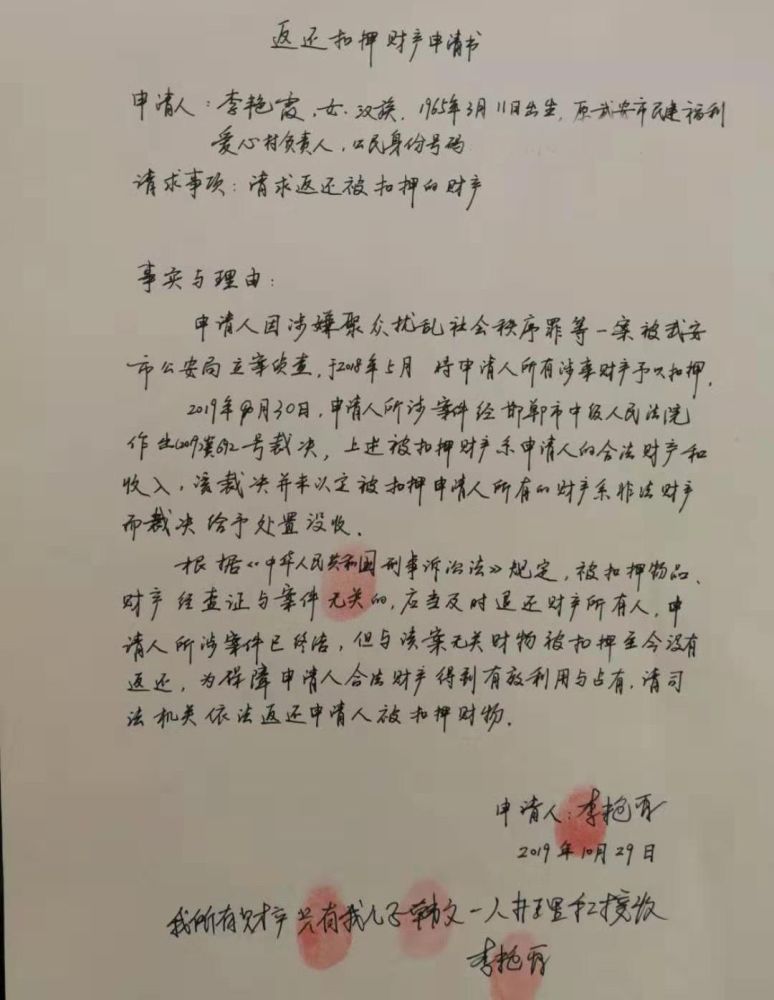 返还扣押财产申请书
申请人：李艳霞，女，汉族，1965年3月11日出生，原武安市民建福利
爱心村负责人，公民身份号码
请求事项：请求返还被扣押的财产
事实与理由：
申请人因涉嫌聚众扰乱社会秩序罪等一案被武安
市公安局立案侦查，于2018年5月 将申请人所有涉案财产予以扣押。
2019年 月30日，申请人所涉案件经邯郸市中级人民法院
作出 号裁决，上述被扣押财产系申请人的合法财产和
收入，该裁决并未认定被扣押申请人所有的财产系非法财产
而裁决给予处置没收。
根据《中华人民共和国刑事诉讼法》规定，被扣押物品、
财产经查证与案件无关的，应当及时退还财产所有人，申
请人所涉案件已终结，但与该案无关财物被扣押至今没有
返还，为保障申请人合法财产得到有效利用与占有，请司
法机关依法返还申请人被扣押财物。
申请人：李艳霞
2019年10月29日
我所有财产只有我儿子韩文一人 理和接收
李艳霞